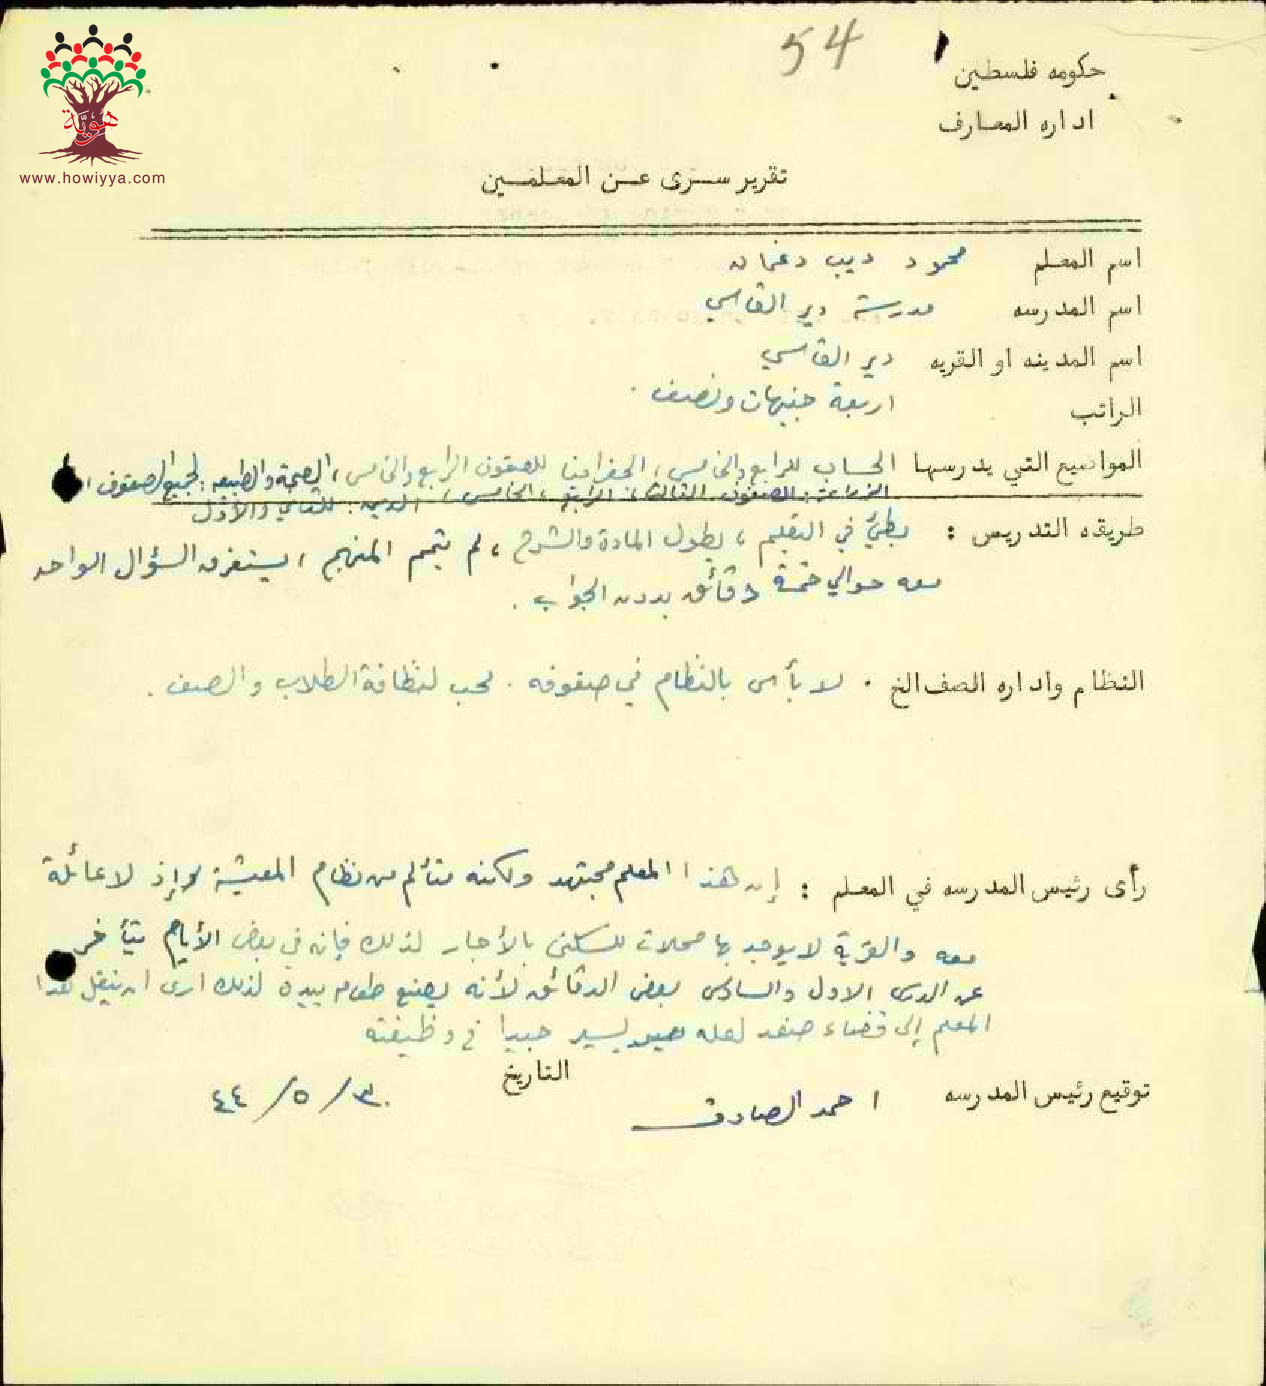 54
حكومه فلسطين
اداره المعارف
هويّة
www.howiyya.com
تقرير سرى عن المعلمين
اسم المعلم محمود ديب دغمان
اسم المدرسه مدرسة دير القاسي
اسم المدينه او القريه دير القاسي
الراتب اربعة جنيهات ونصف .
المواضيع التي يدرسها الحساب للرابع والخامس، الجغرافيا للصفوف الرابع والخامس، الصحة والطبيعه: لجميع الصفوف
الزراعة: للصفوف الثالث، الرابع، الخامس، الدين: للثاني والأول
طريقه التدريس : بطيء في التعليم ، يطول المادة والشرح ، لم يتمم المنهج ، يستغرق السؤال الواحد
معه حوالي خمسة دقائق بدون الجواب .
النظام واداره الصف الخ . لا بأس بالنظام في صفوفه . محب لنظافة الطلاب والصف .
رأى رئيس المدرسه في المعلم : إن هذا المعلم مجتهد ولكنه متألم من نظام المعيشة وإذ لا عائلة
معه والقرية لا يوجد بها محلات للسكنى بالأجار لذلك فإنه في بعض الأيام يتأخر
عن الدرس الاول والسادس بعض الدقائق لأنه يصنع طعامه بيده لذلك ارى ان ينقل هذا
المعلم إلى قضاء صفد لعله يسير جيدا في وظيفته
توقيع رئيس المدرسه احمد الصادق التاريخ ٣٠/٥/٤٤